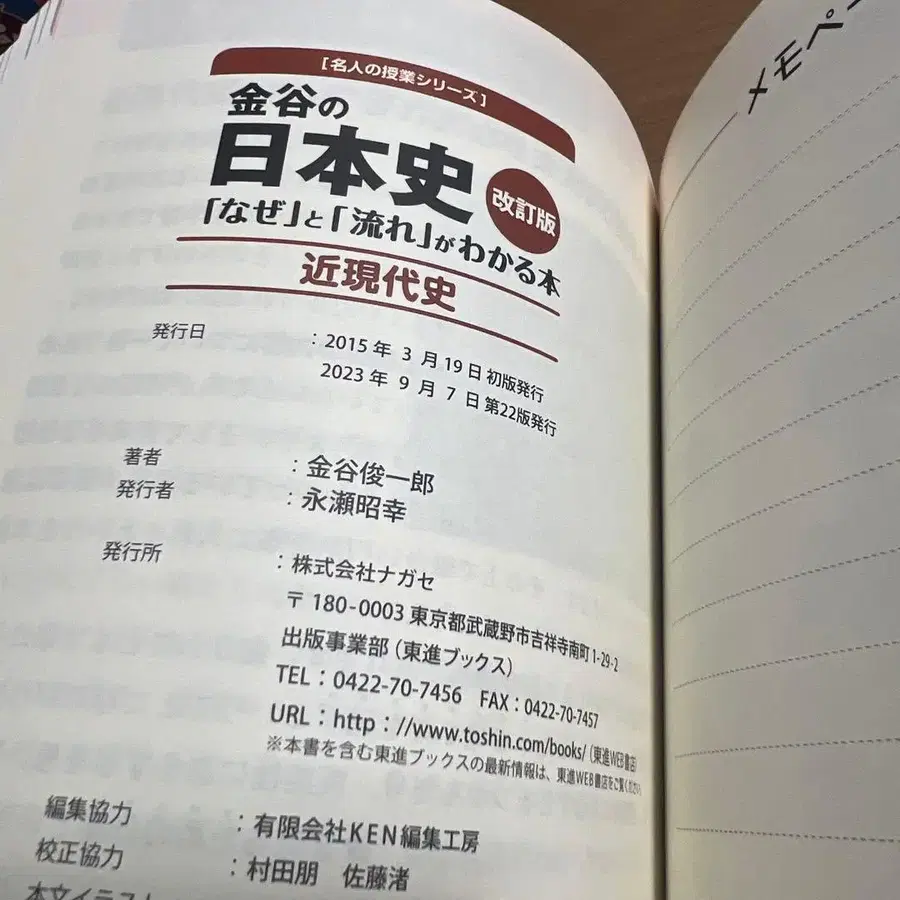 [名人の授業シリーズ]
金谷の
日本史
改訂版
「なぜ」と「流れ」がわかる本
近現代史
発行日 : 2015年 3月19日 初版発行
2023年 9月 7日 第22版発行
著者 : 金谷俊一郎
発行者 : 永瀬昭幸
発行所 : 株式会社ナガセ
〒180-0003 東京都武蔵野市吉祥寺南町1-29-2
出版事業部(東進ブックス)
TEL:0422-70-7456 FAX:0422-70-7457
URL:http://www.toshin.com/books/(東進WEB書店)
※本書を含む東進ブックスの最新情報は、東進WEB書店をご覧ください
編集協力 : 有限会社KEN編集工房
校正協力 : 村田朋 佐藤渚
本文イラスト
メモペー